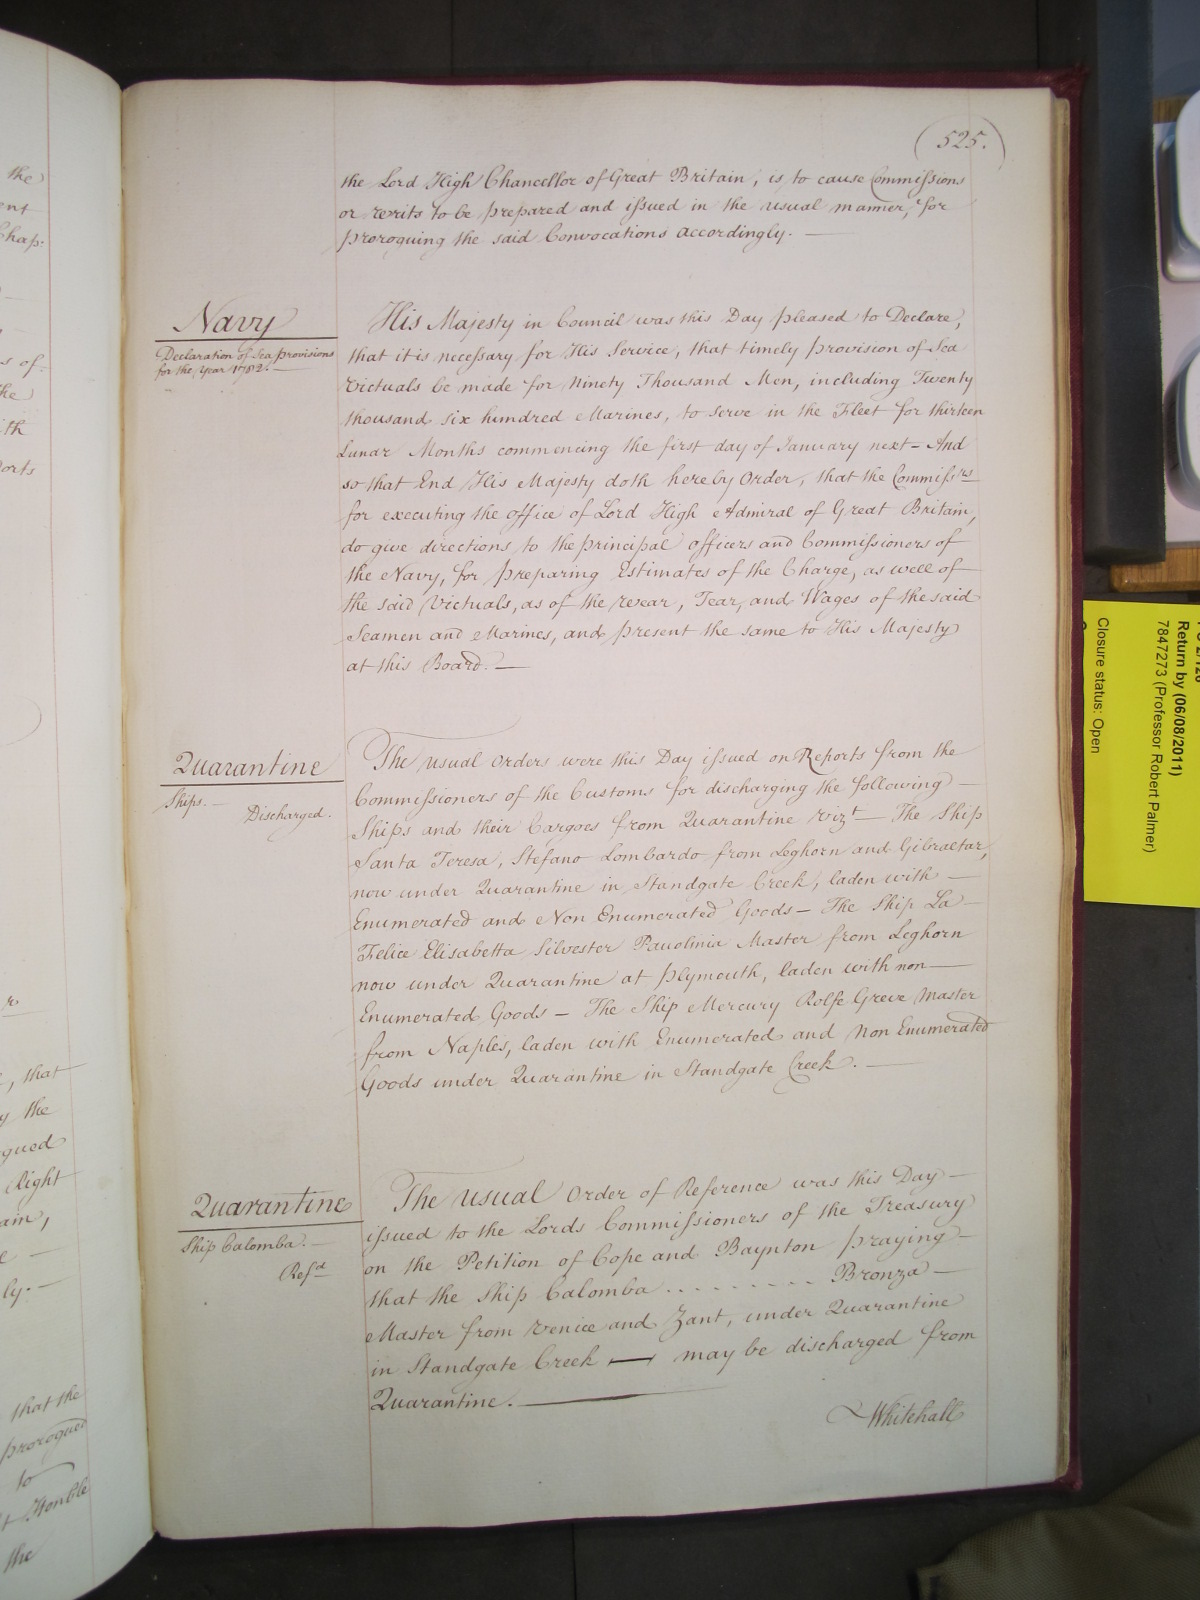 525.
the Lord High Chancellor of Great Britain, is to cause Commissions
or writs to be prepared and issued in the usual manner, for
proroguing the said Convocations accordingly. —
Navy
Declaration of Sea provisions
for the Year 1782. —
His Majesty in Council was this Day pleased to Declare,
that it is necessary for His Service, that timely provision of Sea
Victuals be made for Ninety Thousand Men, including Twenty
thousand six hundred Marines, to serve in the Fleet for thirteen
Lunar Months commencing the first day of January next – And
so that End His Majesty doth hereby Order, that the Commissrs
for executing the office of Lord High Admiral of Great Britain,
do give directions to the principal officers and Commissioners of
the Navy, for preparing Estimates of the Charge, as well of
the said Victuals, as of the Wear, Tear, and Wages of the said
Seamen and Marines, and present the same to His Majesty
at this Board. —
Quarantine
Ships. —
Discharged.
The usual orders were this Day issued on Reports from the
Commissioners of the Customs for discharging the following —
Ships and their Cargoes from Quarantine vizt — The Ship
Santa Teresa, Stefano Lombardo from Leghorn and Gibraltar,
now under Quarantine in Standgate Creek, laden with —
Enumerated and Non Enumerated Goods – The Ship La —
Felice Elisabetta Silvester Pauolinia Master from Leghorn
now under Quarantine at Plymouth, laden with non —
Enumerated Goods – The Ship Mercury Rolfe Greve Master
from Naples, laden with Enumerated and Non Enumerated
Goods under Quarantine in Standgate Creek. —
Quarantine
Ship Calomba. —
Refd
The usual Order of Reference was this Day —
issued to the Lords Commissioners of the Treasury
on the Petition of Cope and Baynton praying —
that the Ship Calomba . . . . . . . . . Bronza —
Master from Venice and Zant, under Quarantine
in Standgate Creek — may be discharged from
Quarantine. —
Whitehall
the
ent
Chap:
s of
the
ith
orts
, that
y the
gued
Right
ain,
e —
ly: —
that the
prorogued
to
Honble
the
Return by (06/08/2011)
7847273 (Professor Robert Palmer)
Closure status: Open